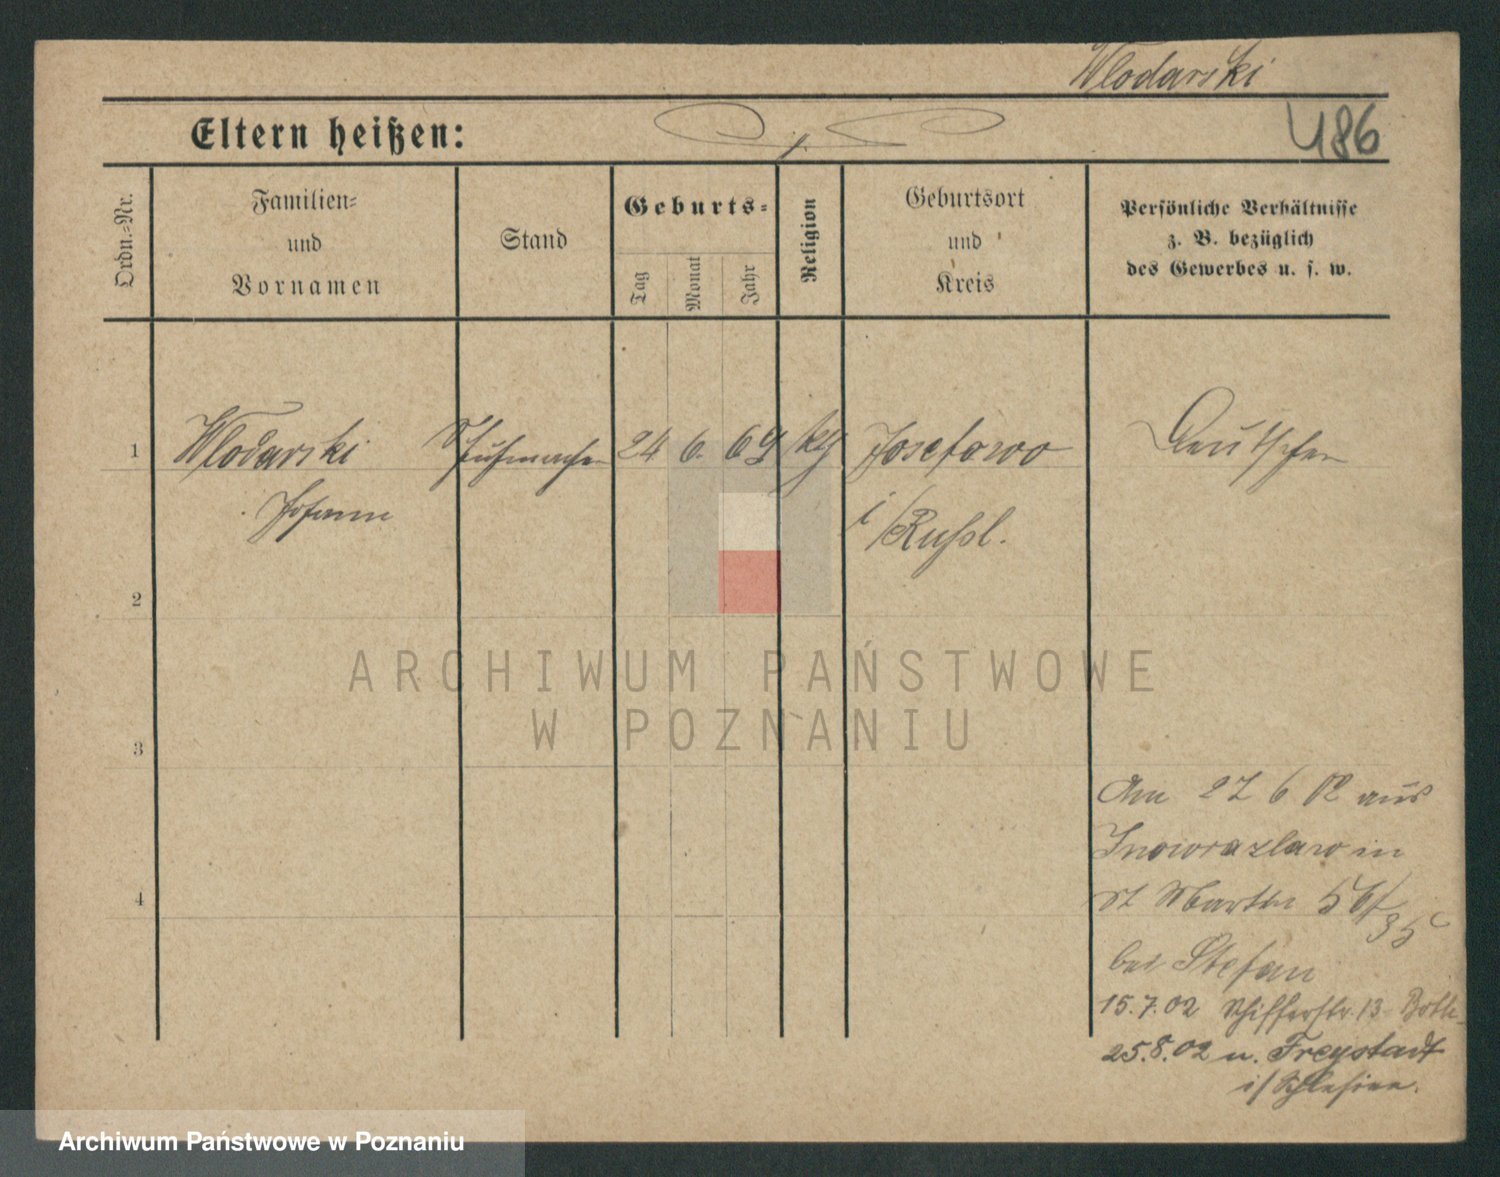 Wlodarski
Eltern heißen:
486
Ordn.-Nr.
Familien-
und
Vornamen
Stand
Geburts-
Tag
Monat
Jahr
Religion
Geburtsort
und
Kreis
Persönliche Verhältnisse
z. B. bezüglich
des Gewerbes u. s. w.
1 Wlodarski Schuhmacher 24 6. 69 kg Josefowo Deutscher
Johann i/Rußl.
2
ARCHIWUM PAŃSTWOWE
W POZNANIU
3
Am 27 6 02 aus
Inowrazlaw in
St Martin 56/
35
bei Stefan
4
15.7.02 Schifferstr. 13
25.8.02 n. Freystadt
i/Schlesien.
Archiwum Państwowe w Poznaniu